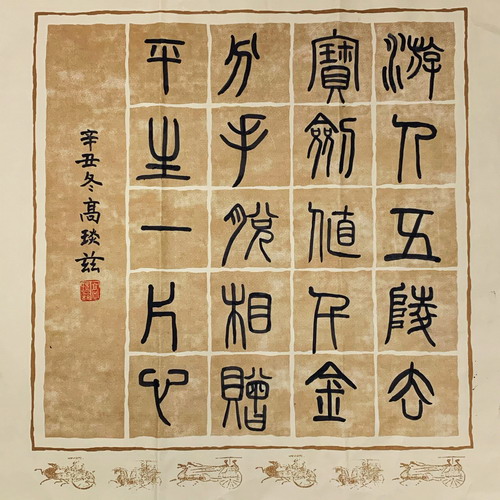 游人五陵去
寶劍值千金
分手脫相贈
平生一片心
辛丑冬高琰兹